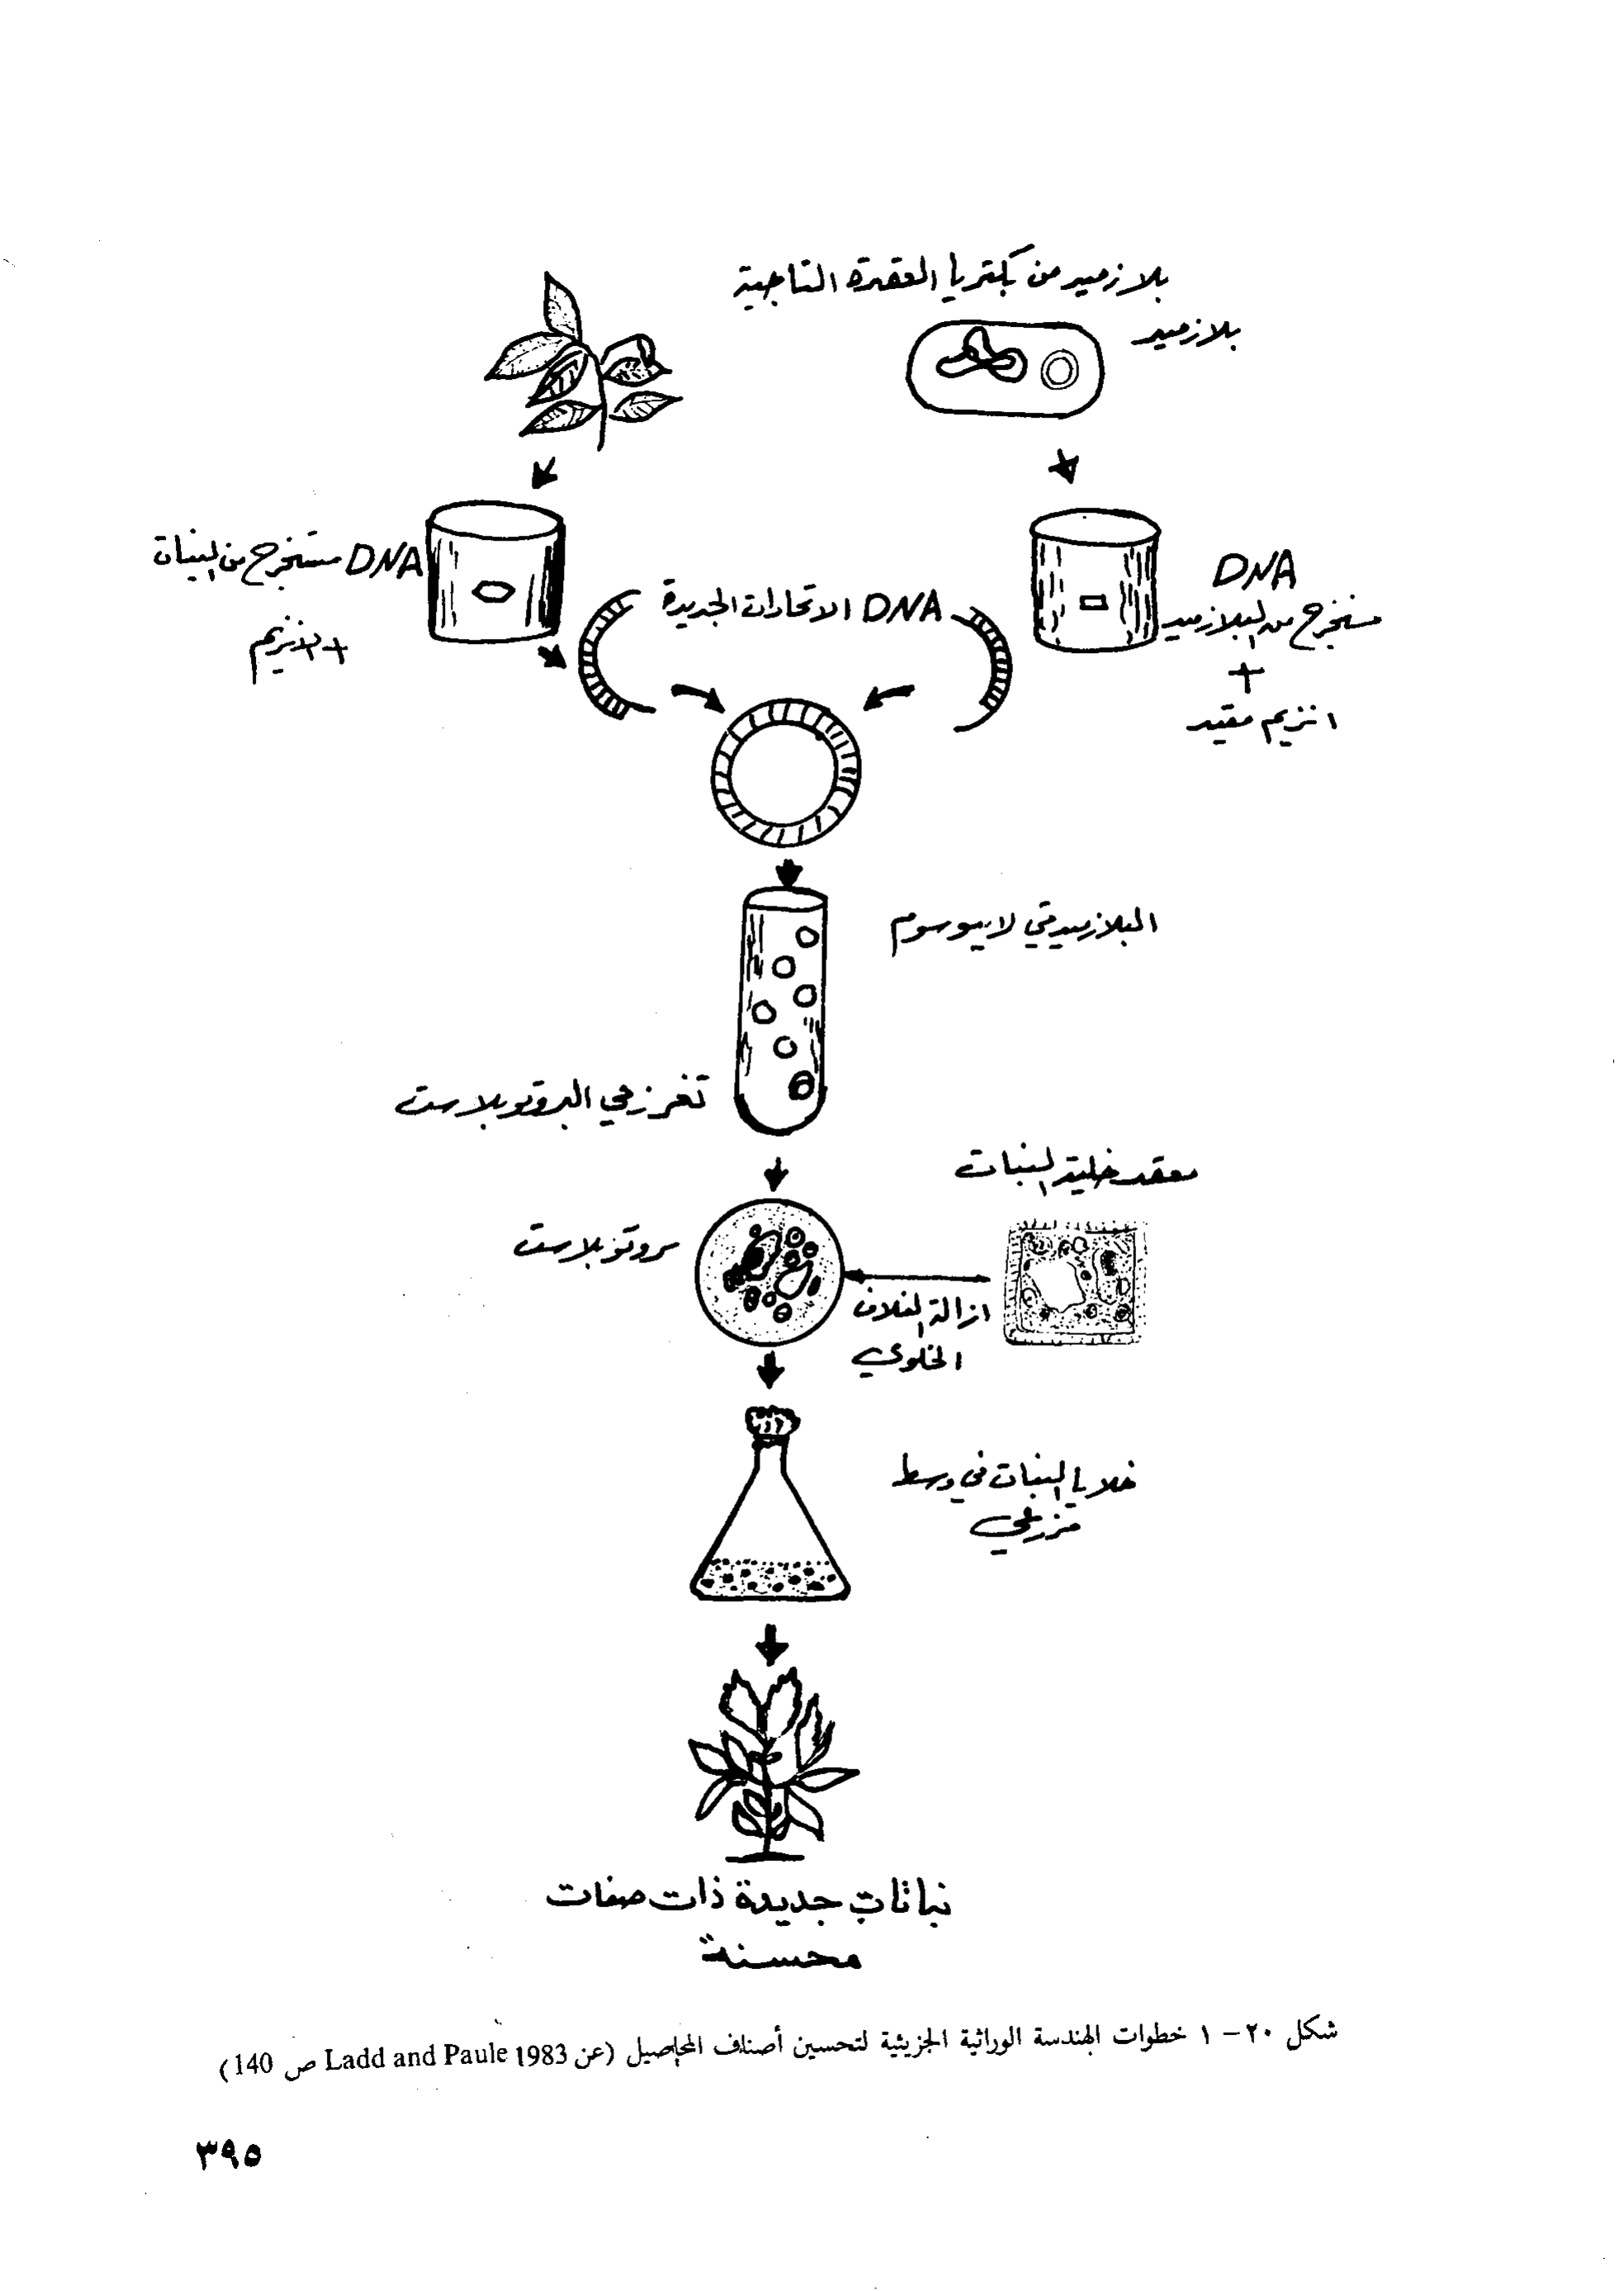 بلازميد من بكتريا العقدة التاجية
بلازميد
DNA مستخرج من النبات
+ الانزيم
DNA الاتحادات الجديدة
DNA
مستخرج من البلازميد
+
انزيم مقيد
البلازميد في لايبوسوم
تغرز في البروتوبلاست
معقد خلية النبات
بروتوبلاست
ازالة الغلاف
الخلوي
خلايا النبات في وسط
مزرعي
نباتات جديدة ذات صفات
محسنة
شكل ٢٠ – ١ خطوات الهندسة الوراثية الجزيئية لتحسين أصناف المحاصيل (عن Ladd and Paule 1983 ص 140)
٣٩٥